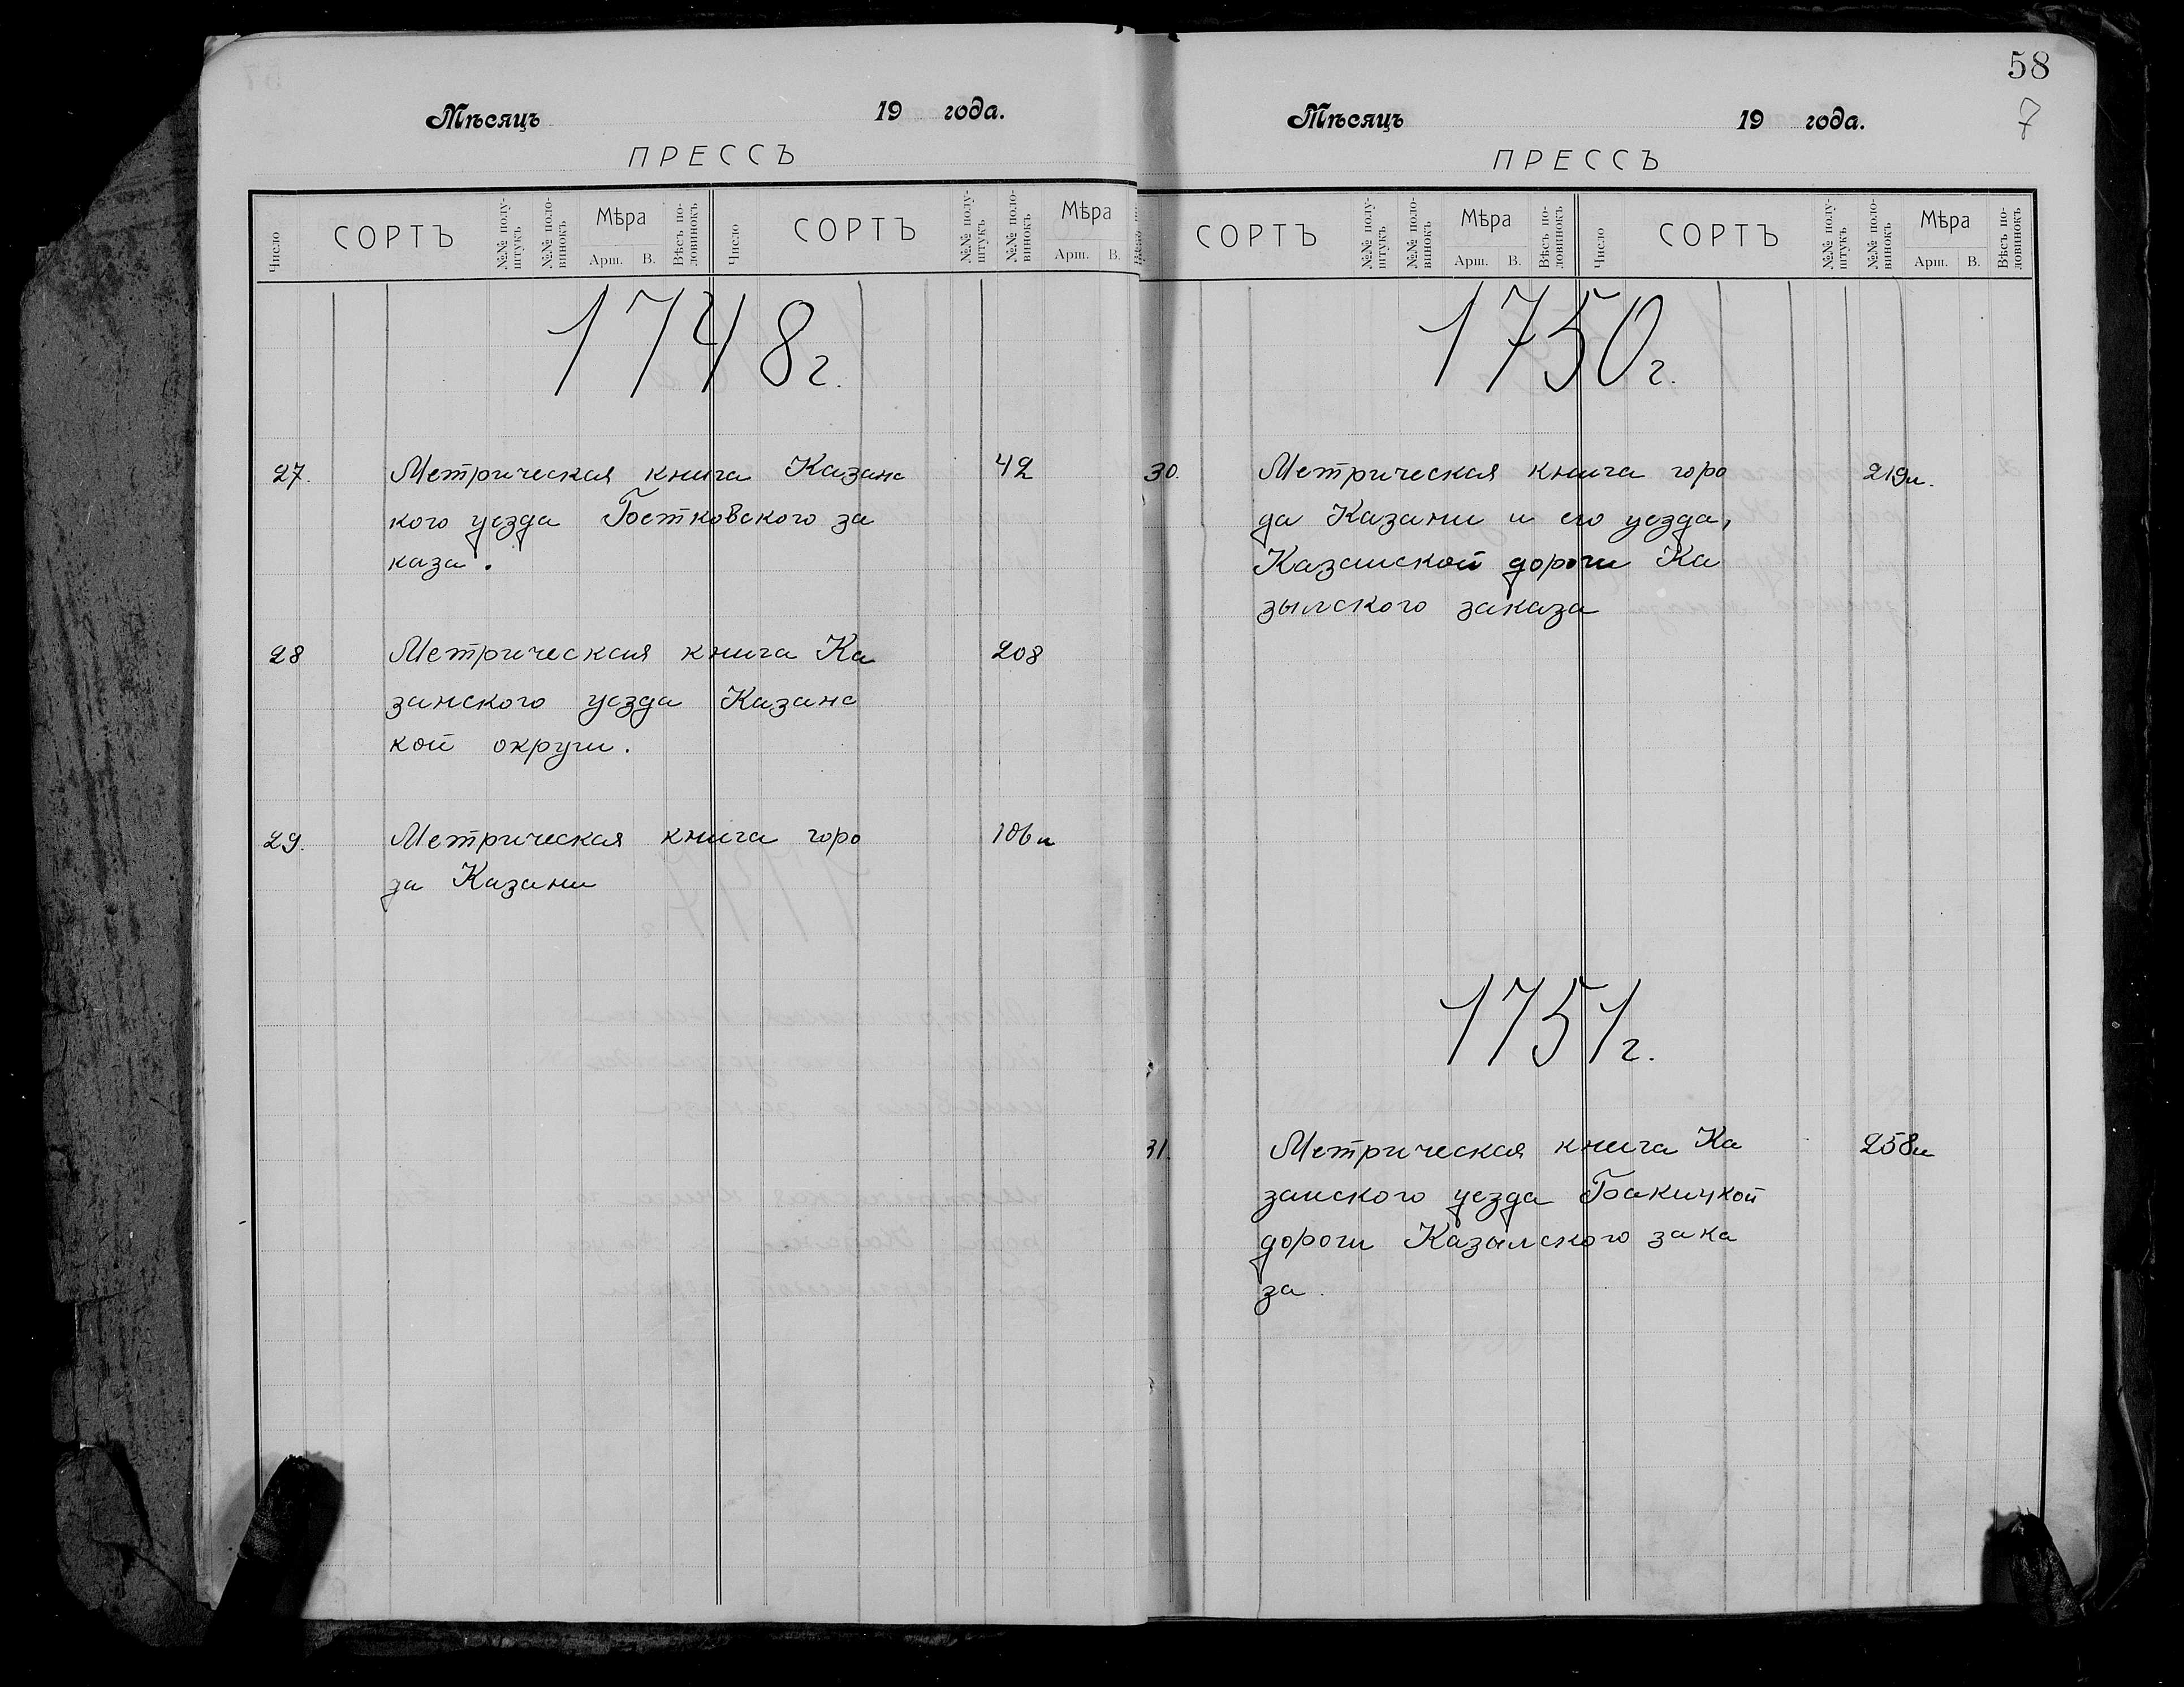 Мѣсяцъ 19 года.
ПРЕССЪ
Число СОРТЪ №№ полу-штукъ №№ поло-винокъ Мѣра Арш. В. Вѣсъ по-ловинокъ Число СОРТЪ №№ полу-штукъ №№ поло-винокъ Мѣра Арш. В.
1748г.
27. Метрическая книга Казанс 42
кого уезда Бетьковского за
каза.
28 Метрическая книга Ка 208
занского уезда Казанс
кой округи.
29. Метрическая книга горо 106и
да Казани
58
7
Мѣсяцъ 19 года.
ПРЕССЪ
СОРТЪ №№ полу-штукъ №№ поло-винокъ Мѣра Арш. В. Вѣсъ по-ловинокъ Число СОРТЪ №№ полу-штукъ №№ поло-винокъ Мѣра Арш. В. Вѣсъ по-ловинокъ
1750г.
30. Метрическая книга горо 219и.
да Казани и его уезда,
Казанской дороги Ка
зылского заказа
1751г.
31. Метрическая книга Ка 258и
занского уезда
дороги Казылского зака
за.